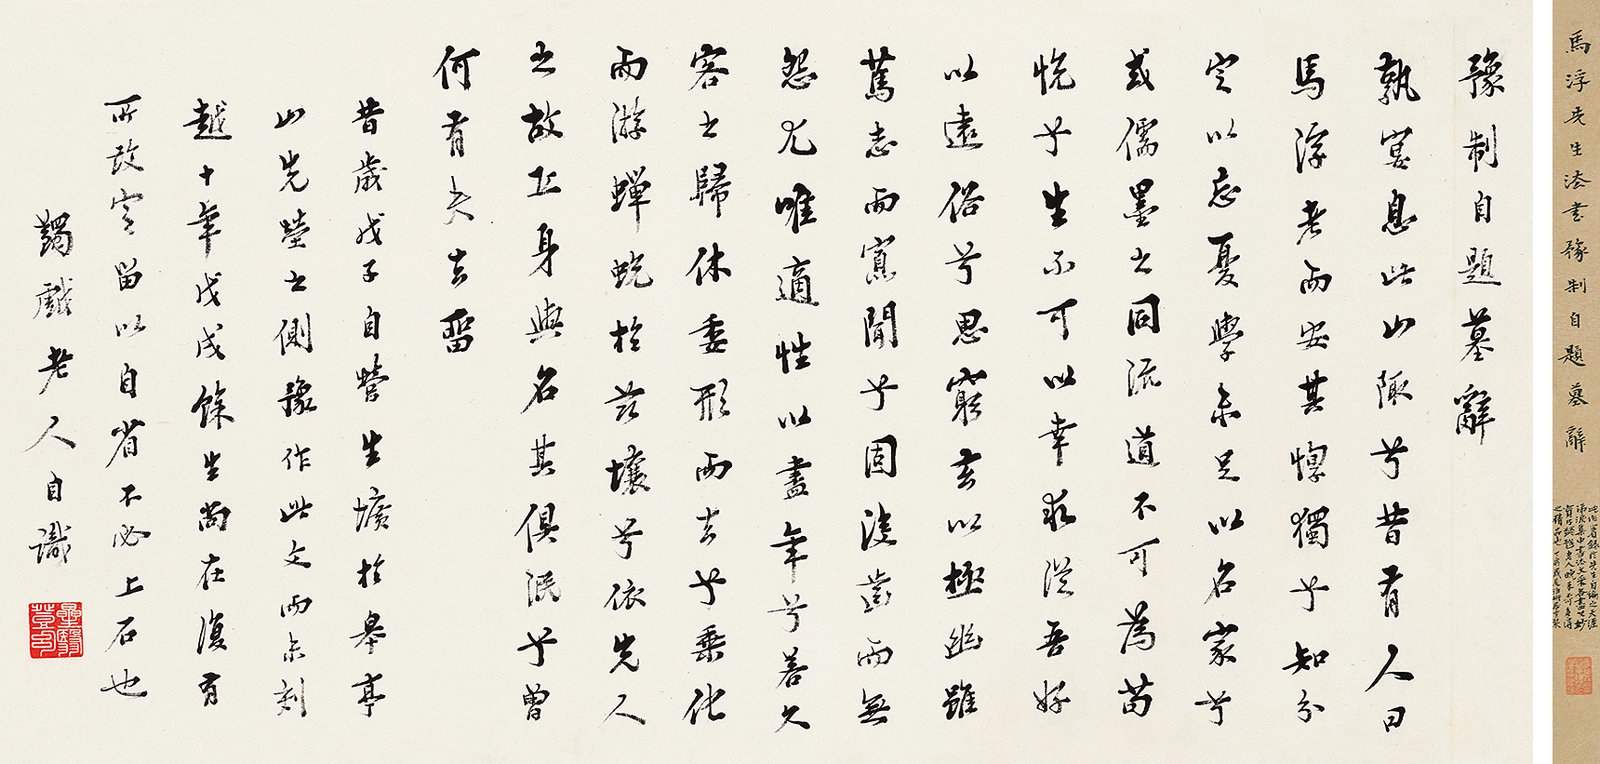 馬浮先生法書豫制自題墓辭
豫制自題墓辭
孰宴息此山陬兮昔有人曰
馬浮老而安其惸獨兮知分
定以忘憂學未足以名家兮
或儒墨之同流道不可為苟
悅兮生不可以幸求從吾好
以遠俗兮思窮玄以極幽雖
篤志而寡聞兮固沒齒而無
怨尤唯適性以盡年兮若久
客之歸休委形而去兮乘化
而游蟬蛻於茲壤兮依先人
之故丘身與名其俱泯兮曾
何有夫去留
昔歲戊子自營生壙於皋亭
山先塋之側豫作此文而未刻
越十年戊戌餘生尚在復有
所改定留以自省不必上石也
蠲戲老人自識